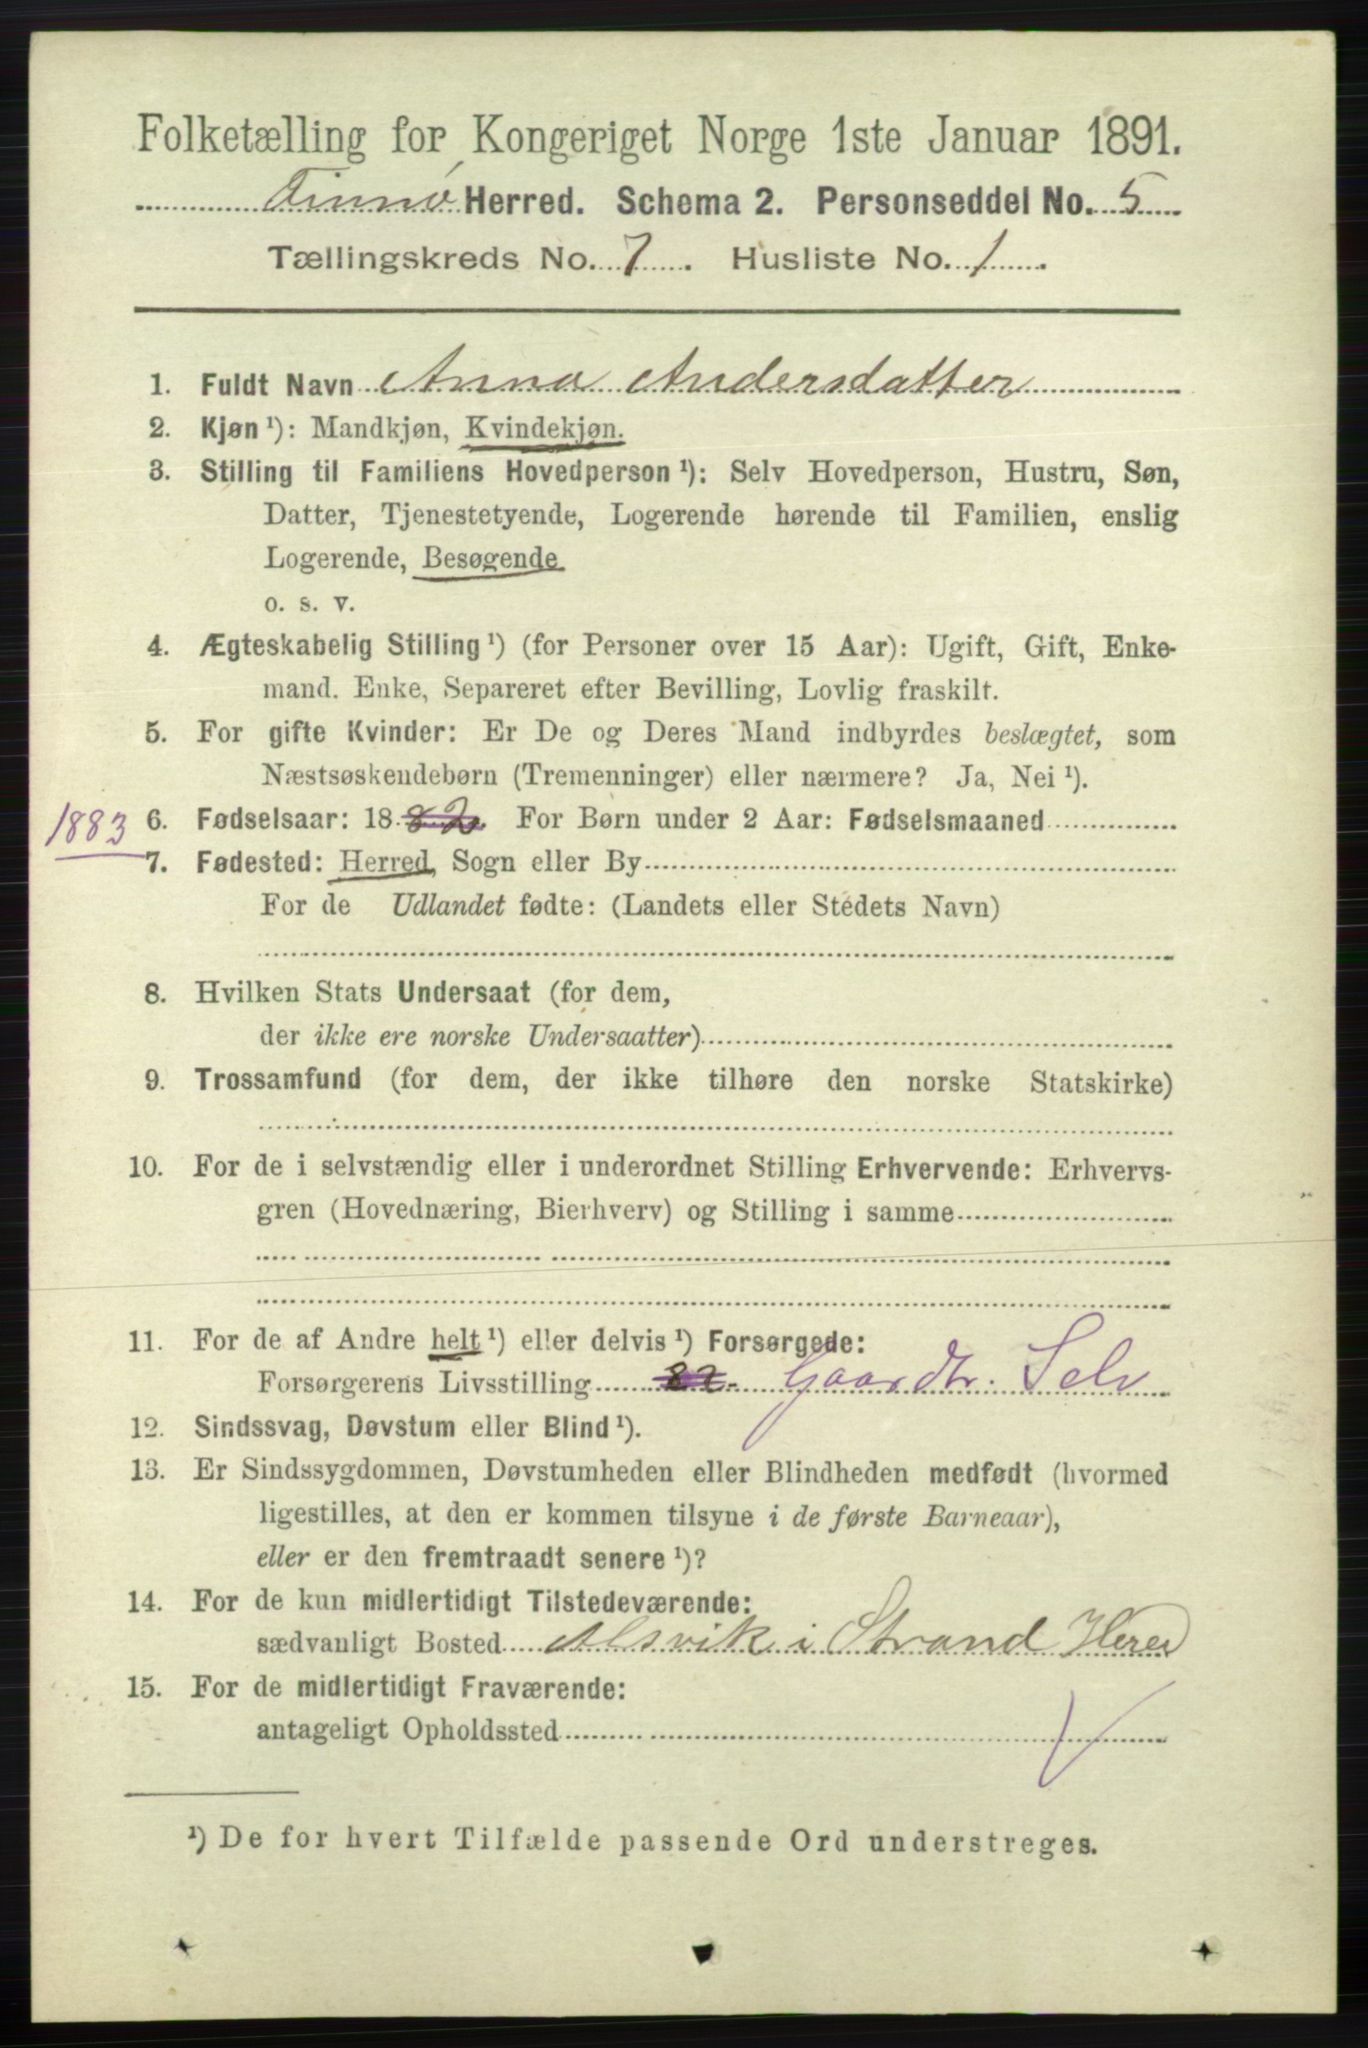 Folketælling for Kongeriget Norge 1ste Januar 1891.
Finnø Herred. Schema 2. Personseddel No. 5
Tællingskreds No. 7. Husliste No. 1.
1. Fuldt Navn Anna Andersdatter
2. Kjøn ¹): Mandkjøn, Kvindekjøn.
3. Stilling til Familiens Hovedperson ¹): Selv Hovedperson, Hustru, Søn,
Datter, Tjenestetyende, Logerende hørende til Familien, enslig
Logerende, Besøgende
o. s. v.
4. Ægteskabelig Stilling ¹) (for Personer over 15 Aar): Ugift, Gift, Enke-
mand. Enke, Separeret efter Bevilling, Lovlig fraskilt.
5. For gifte Kvinder: Er De og Deres Mand indbyrdes beslægtet, som
Næstsøskendebørn (Tremenninger) eller nærmere? Ja, Nei ¹).
1883 6. Fødselsaar: 18 82. For Børn under 2 Aar: Fødselsmaaned
7. Fødested: Herred, Sogn eller By
For de Udlandet fødte: (Landets eller Stedets Navn)
8. Hvilken Stats Undersaat (for dem,
der ikke ere norske Undersaatter)
9. Trossamfund (for dem, der ikke tilhøre den norske Statskirke)
10. For de i selvstændig eller i underordnet Stilling Erhvervende: Erhvervs-
gren (Hovednæring, Bierhverv) og Stilling i samme
11. For de af Andre helt ¹) eller delvis ¹) Forsørgede:
Forsørgerens Livsstilling 82. Gaardbr. Selv
12. Sindssvag, Døvstum eller Blind ¹).
13. Er Sindssygdommen, Døvstumheden eller Blindheden medfødt (hvormed
ligestilles, at den er kommen tilsyne i de første Barneaar),
eller er den fremtraadt senere ¹)?
14. For de kun midlertidigt Tilstedeværende:
sædvanligt Bosted Alsvik i Strand Hered
15. For de midlertidigt Fraværende:
antageligt Opholdssted
¹) De for hvert Tilfælde passende Ord understreges.